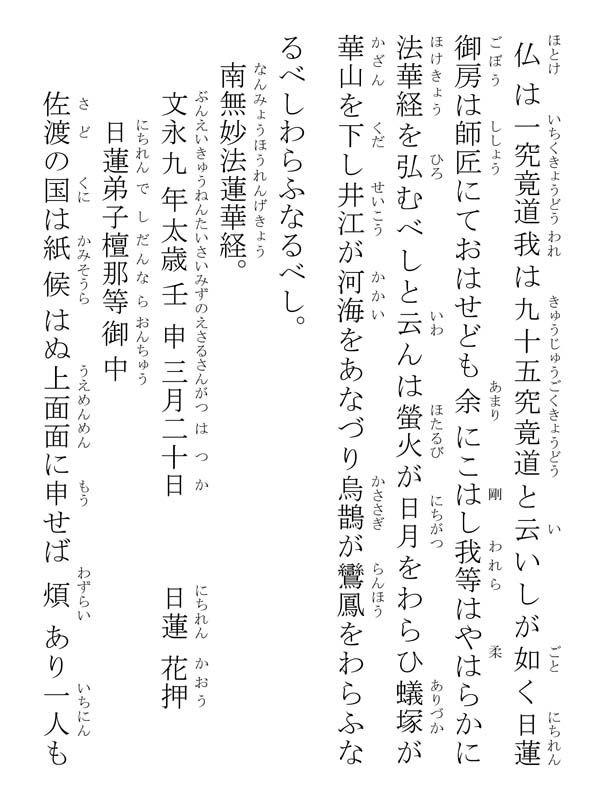 仏は一究竟道我は九十五究竟道と云いしが如く日蓮
御房は師匠にておはせども余にこはし我等はやはらかに
法華経を弘むべしと云んは螢火が日月をわらひ蟻塚が
華山を下し井江が河海をあなづり烏鵲が鸞鳳をわらふな
るべしわらふなるべし。
南無妙法蓮華経。
文永九年太歳壬申三月二十日 日蓮 花押
日蓮弟子檀那等御中
佐渡の国は紙候はぬ上面面に申せば煩あり一人も